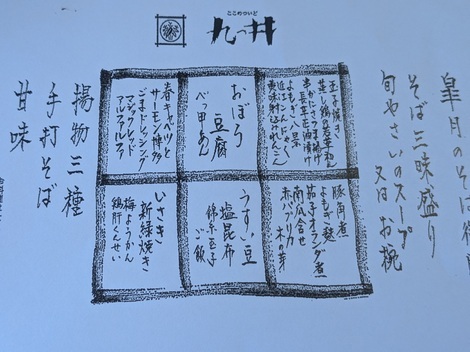 ここのつゐど
九つ井
皐月のそば
そば三味盛り
旬やさいのスープ
又は お椀
玉子焼き
近江こんにゃく
おぼろ
豆腐
べっ甲あん
春キャベツ
サーモン博多
ごまドレッシング
アルファルファ
豚角煮
よもぎ麩
茄子オランダ煮
南瓜含せ
赤パプリカ
木の芽
うすい豆
塩昆布
錦糸玉子
ご飯
いさき
新緑焼き
梅ようかん
鶏肝くんせい
揚物三種
手打そば
甘味